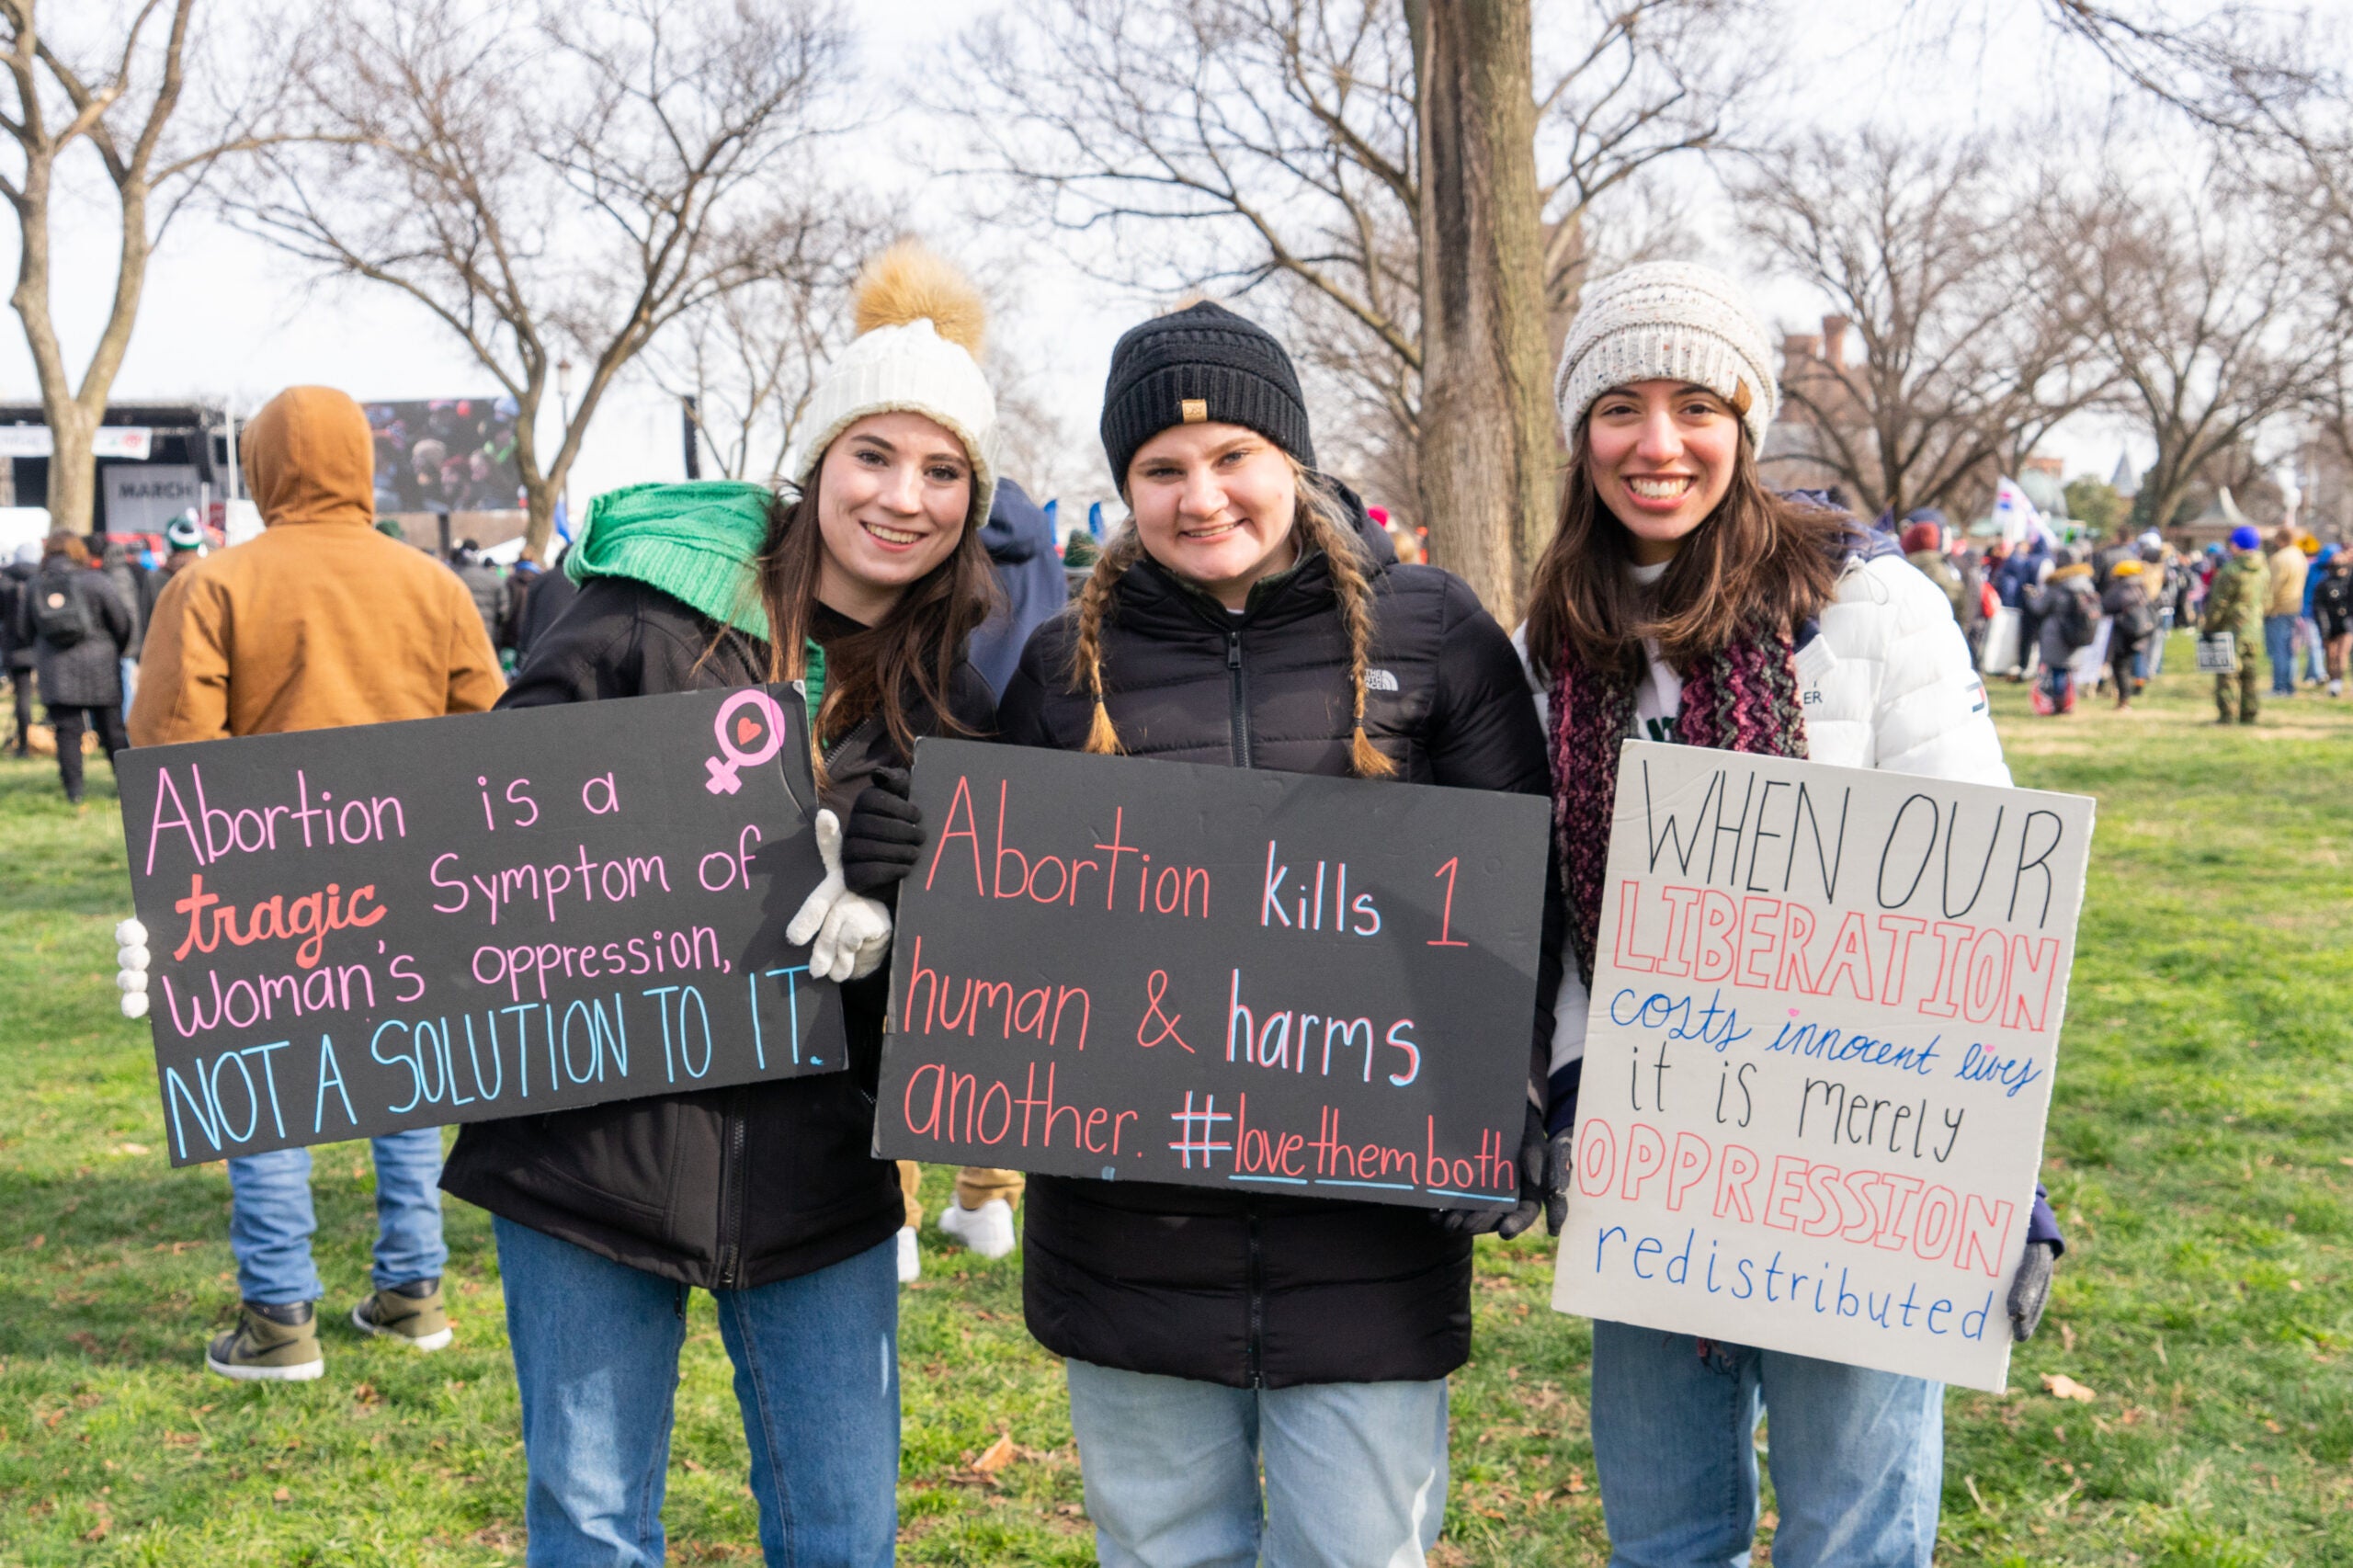 MARCH
Abortion is a
tragic Symptom of
Woman's oppression,
NOT A SOLUTION TO IT.
THE
NORTH
FACE
Abortion kills 1
human & harms
another. #lovethemboth
ER
WHEN OUR
LIBERATION
costs innocent lives
it is merely
OPPRESSION
redistributed